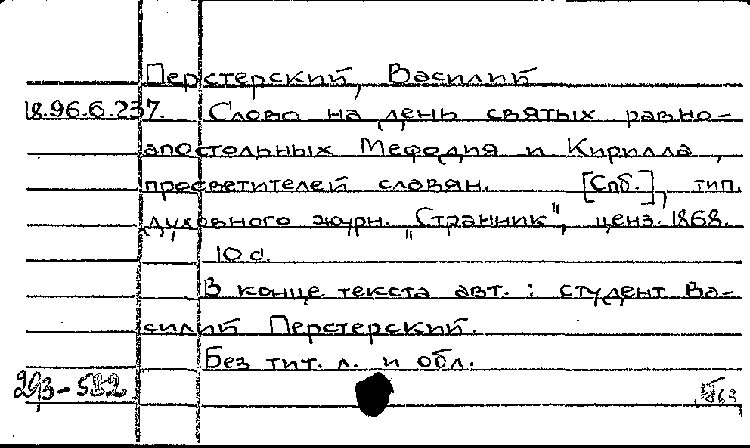 Перстерский, Василий
18.96.6.237. Слово на день святых равно-
апостольных Мефодия и Кирилла,
просветителей славян. [Спб.], тип.
духовного журн. "Странник", ценз. 1868.
10 с.
В конце текста авт.: студент Ва-
силий Перстерский.
Без тит. л. и обл.